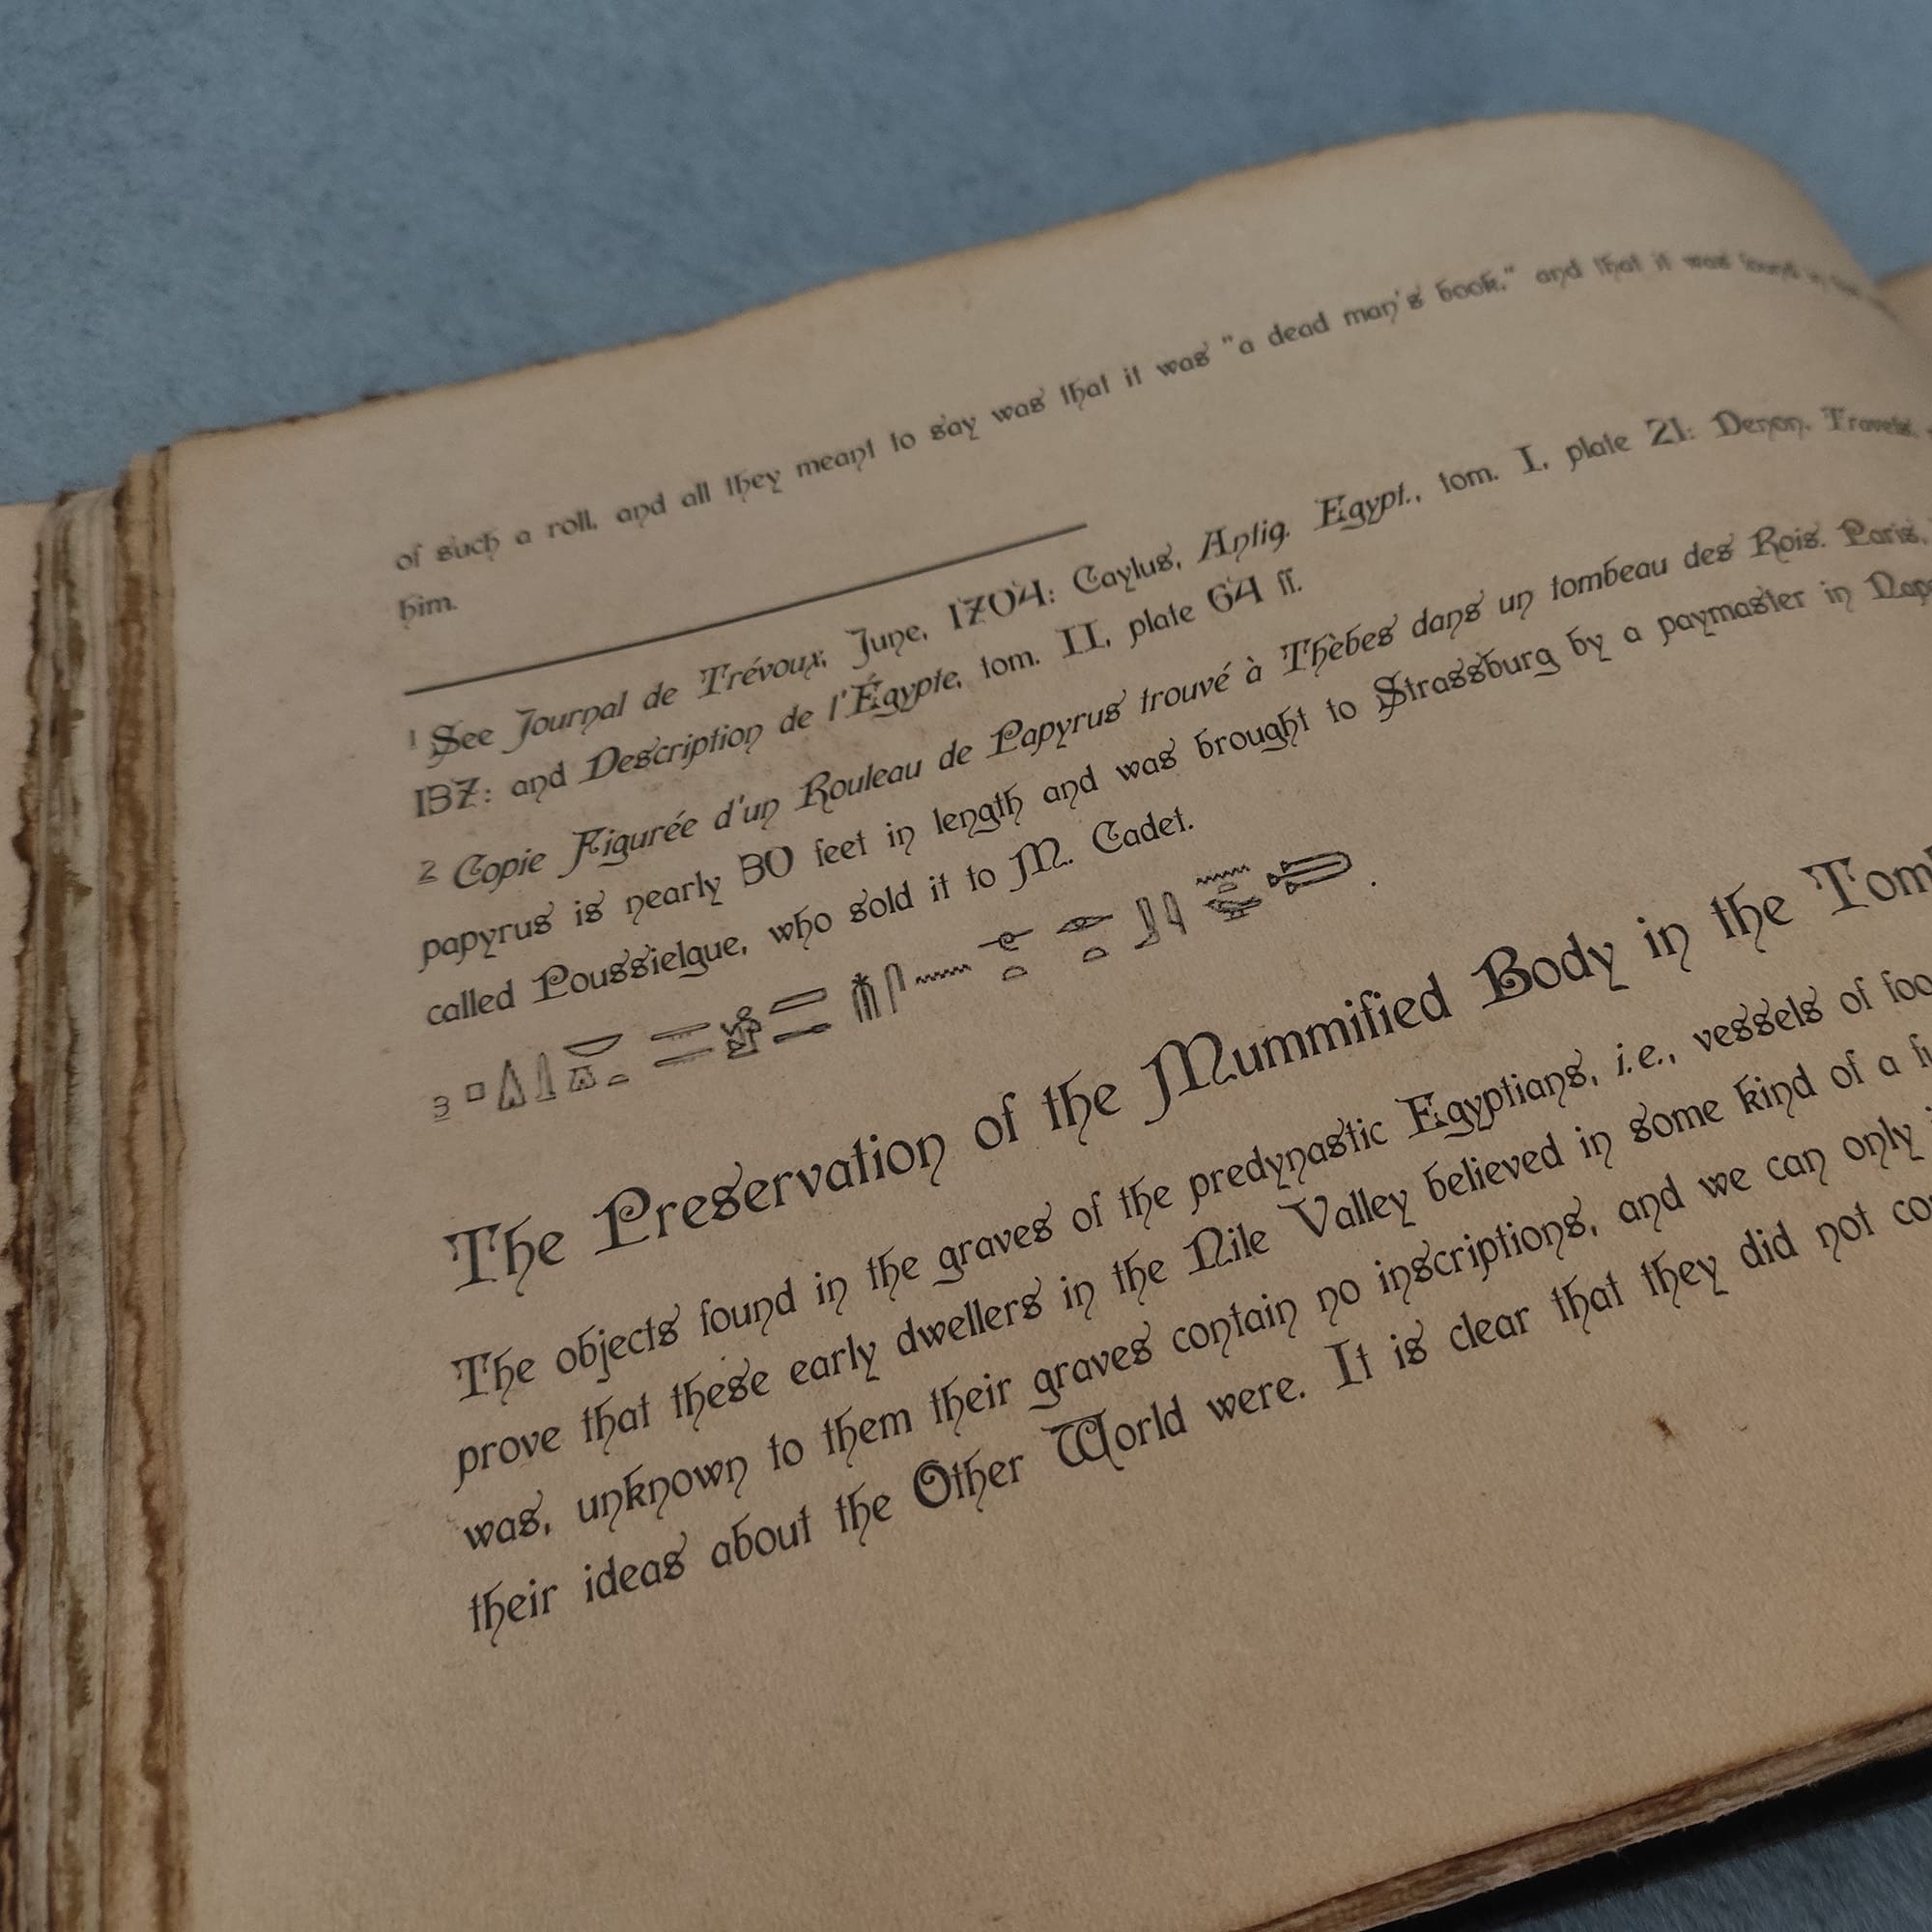 of such a roll, and all they meant to say was that it was "a dead man's book," and that it was found in
him.
1 See Journal de Trévoux, June, 1704: Caylus, Antiq. Egypt., tom. I, plate 21: Denon, Travels,
137: and Description de l'Égypte, tom. II, plate 64 ff.
2 Copie Figurée d'un Rouleau de Papyrus trouvé à Thèbes dans un tombeau des Rois. Paris,
papyrus is nearly 30 feet in length and was brought to Strassburg by a paymaster in
called Poussielgue, who sold it to M. Cadet.
3
The Preservation of the Mummified Body in the
The objects found in the graves of the predynastic Egyptians, i.e., vessels of
prove that these early dwellers in the Nile Valley believed in some kind of a
was, unknown to them their graves contain no inscriptions, and we can only
their ideas about the Other World were. It is clear that they did not